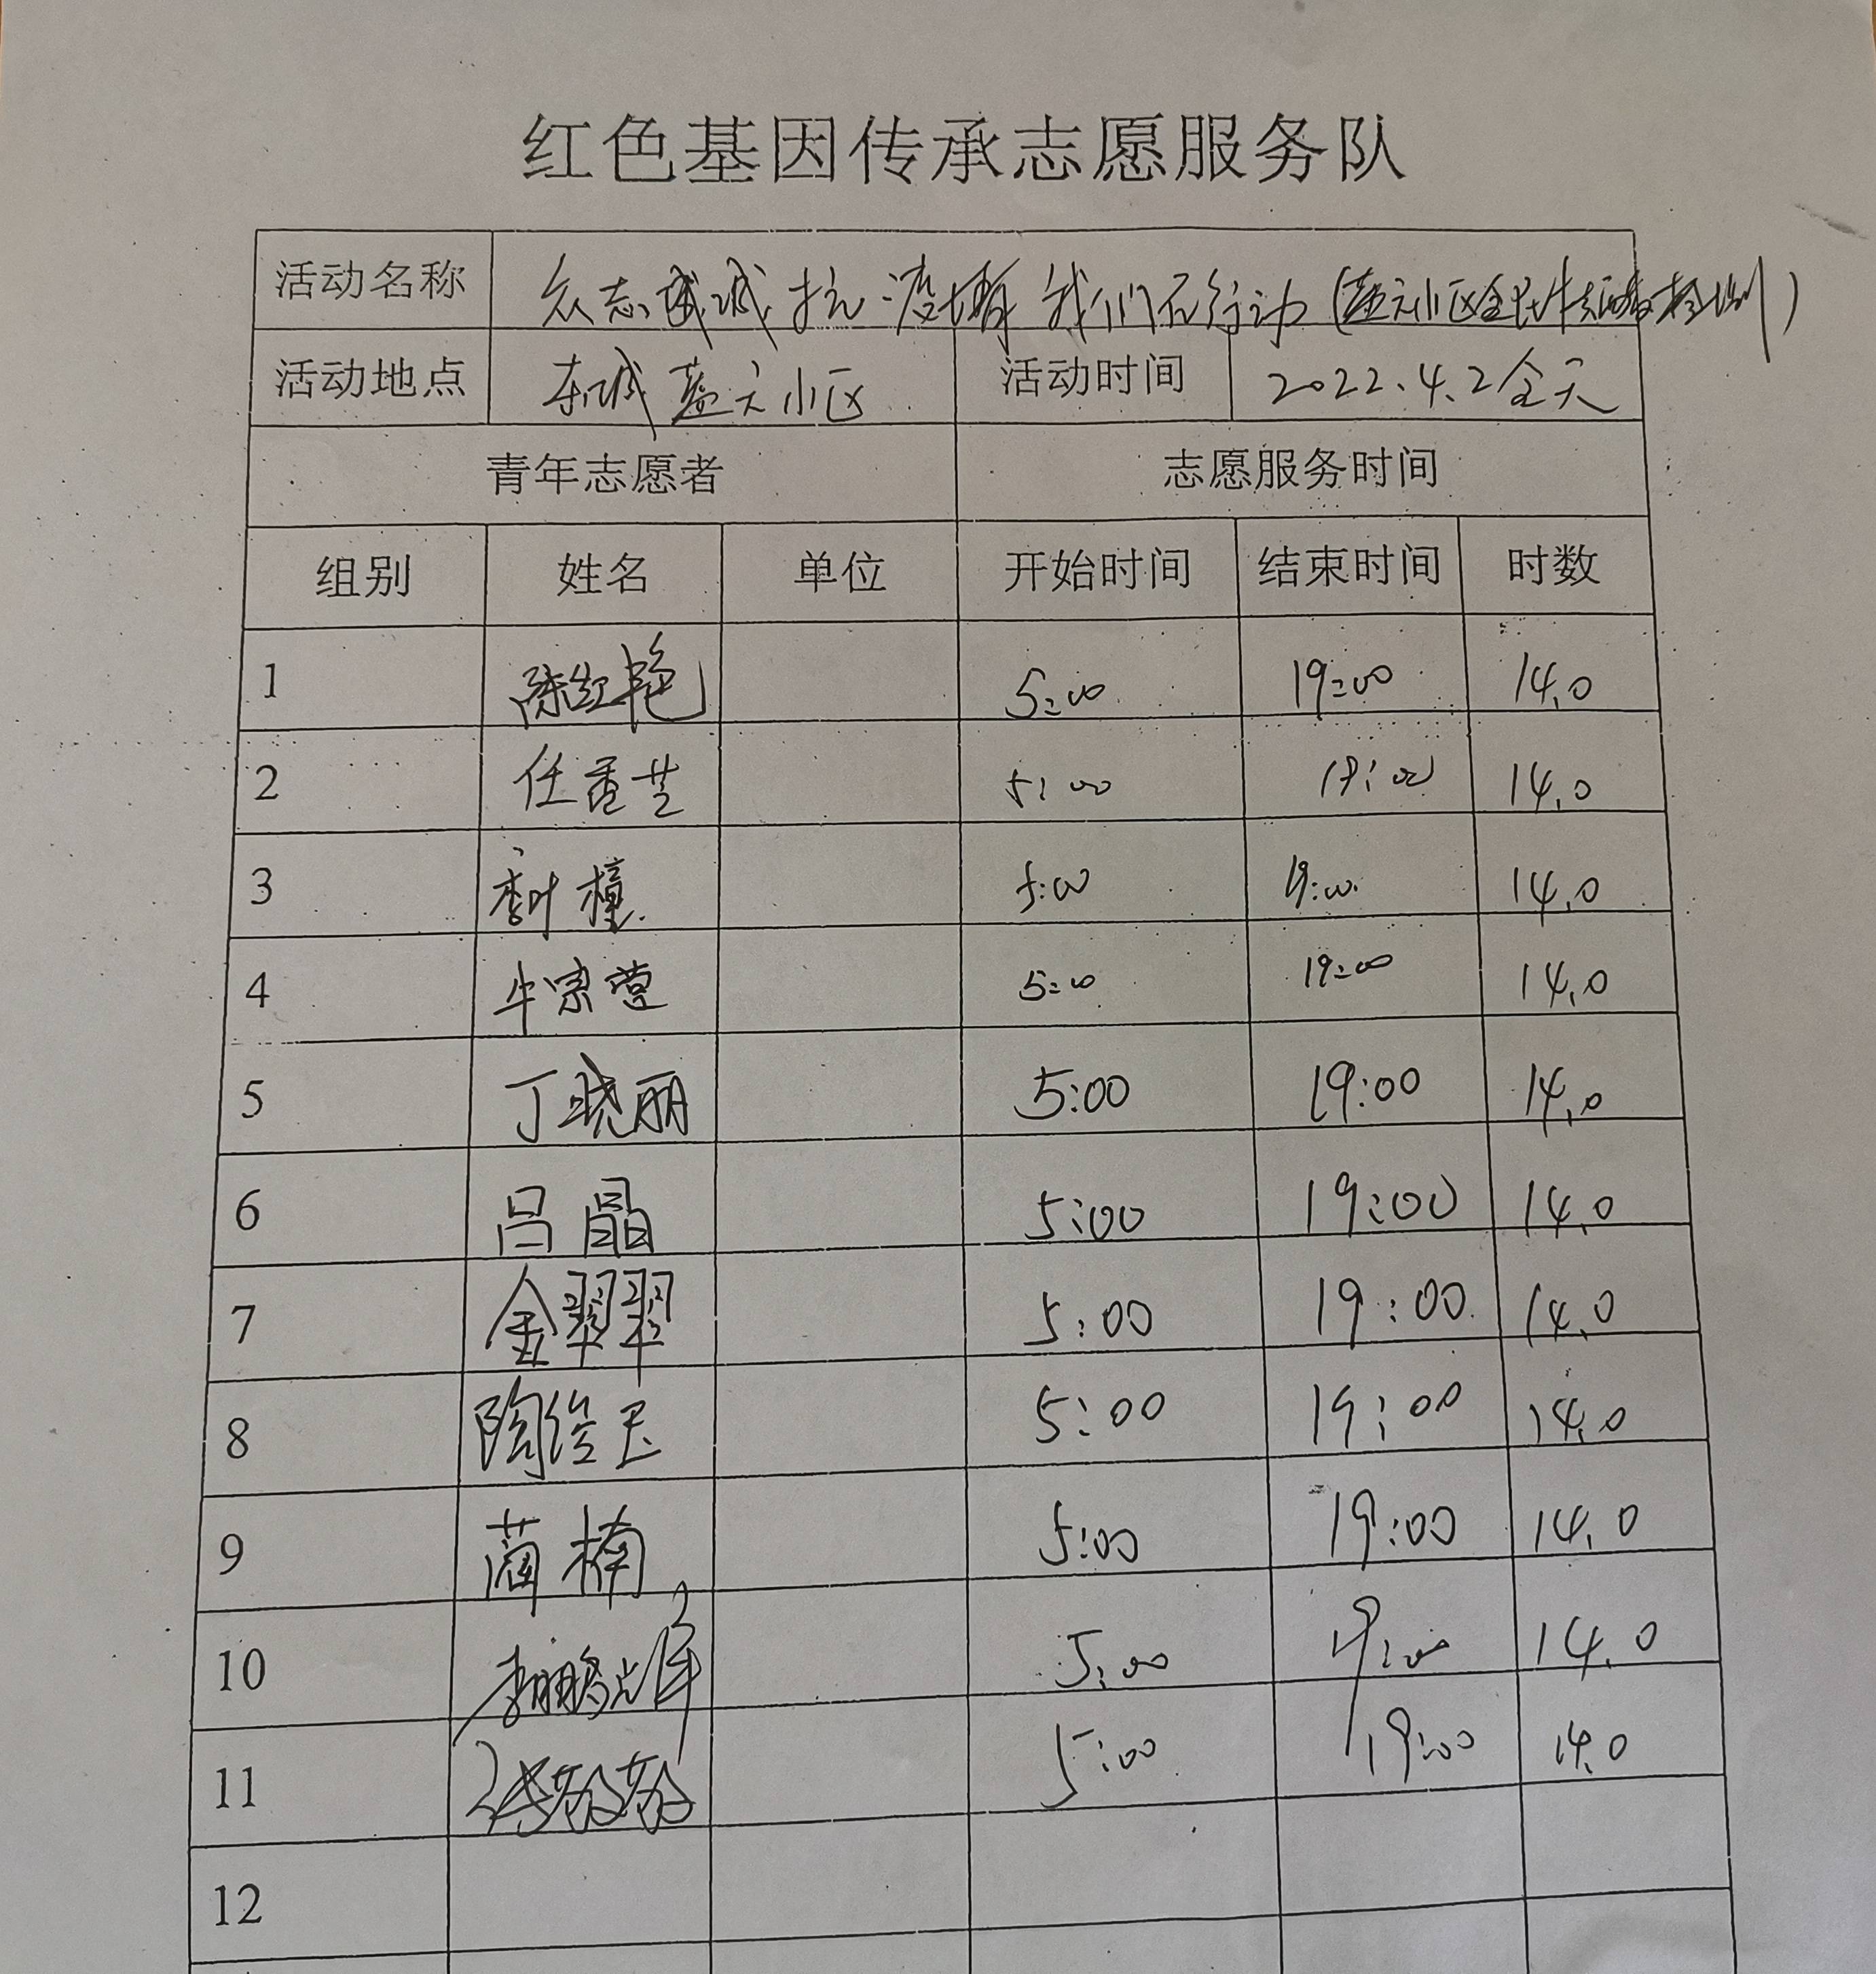 红色基因传承志愿服务队
活动名称 众志成城 抗疫情 我们在行动 (蓝天小区全民核酸检测)
活动地点 东城蓝天小区 活动时间 2022.4.2全天
青年志愿者 志愿服务时间
组别 姓名 单位 开始时间 结束时间 时数
1 陈红艳 5:00 19:00 14.0
2 5:00 19:00 14.0
3 5:00 19:00 14.0
4 5:00 19:00 14.0
5 丁晓丽 5:00 19:00 14.0
6 吕晶 5:00 19:00 14.0
7 金翠翠 5:00 19:00 14.0
8 5:00 19:00 14.0
9 蔺楠 5:00 19:00 14.0
10 5:00 19:00 14.0
11 5:00 19:00 14.0
12